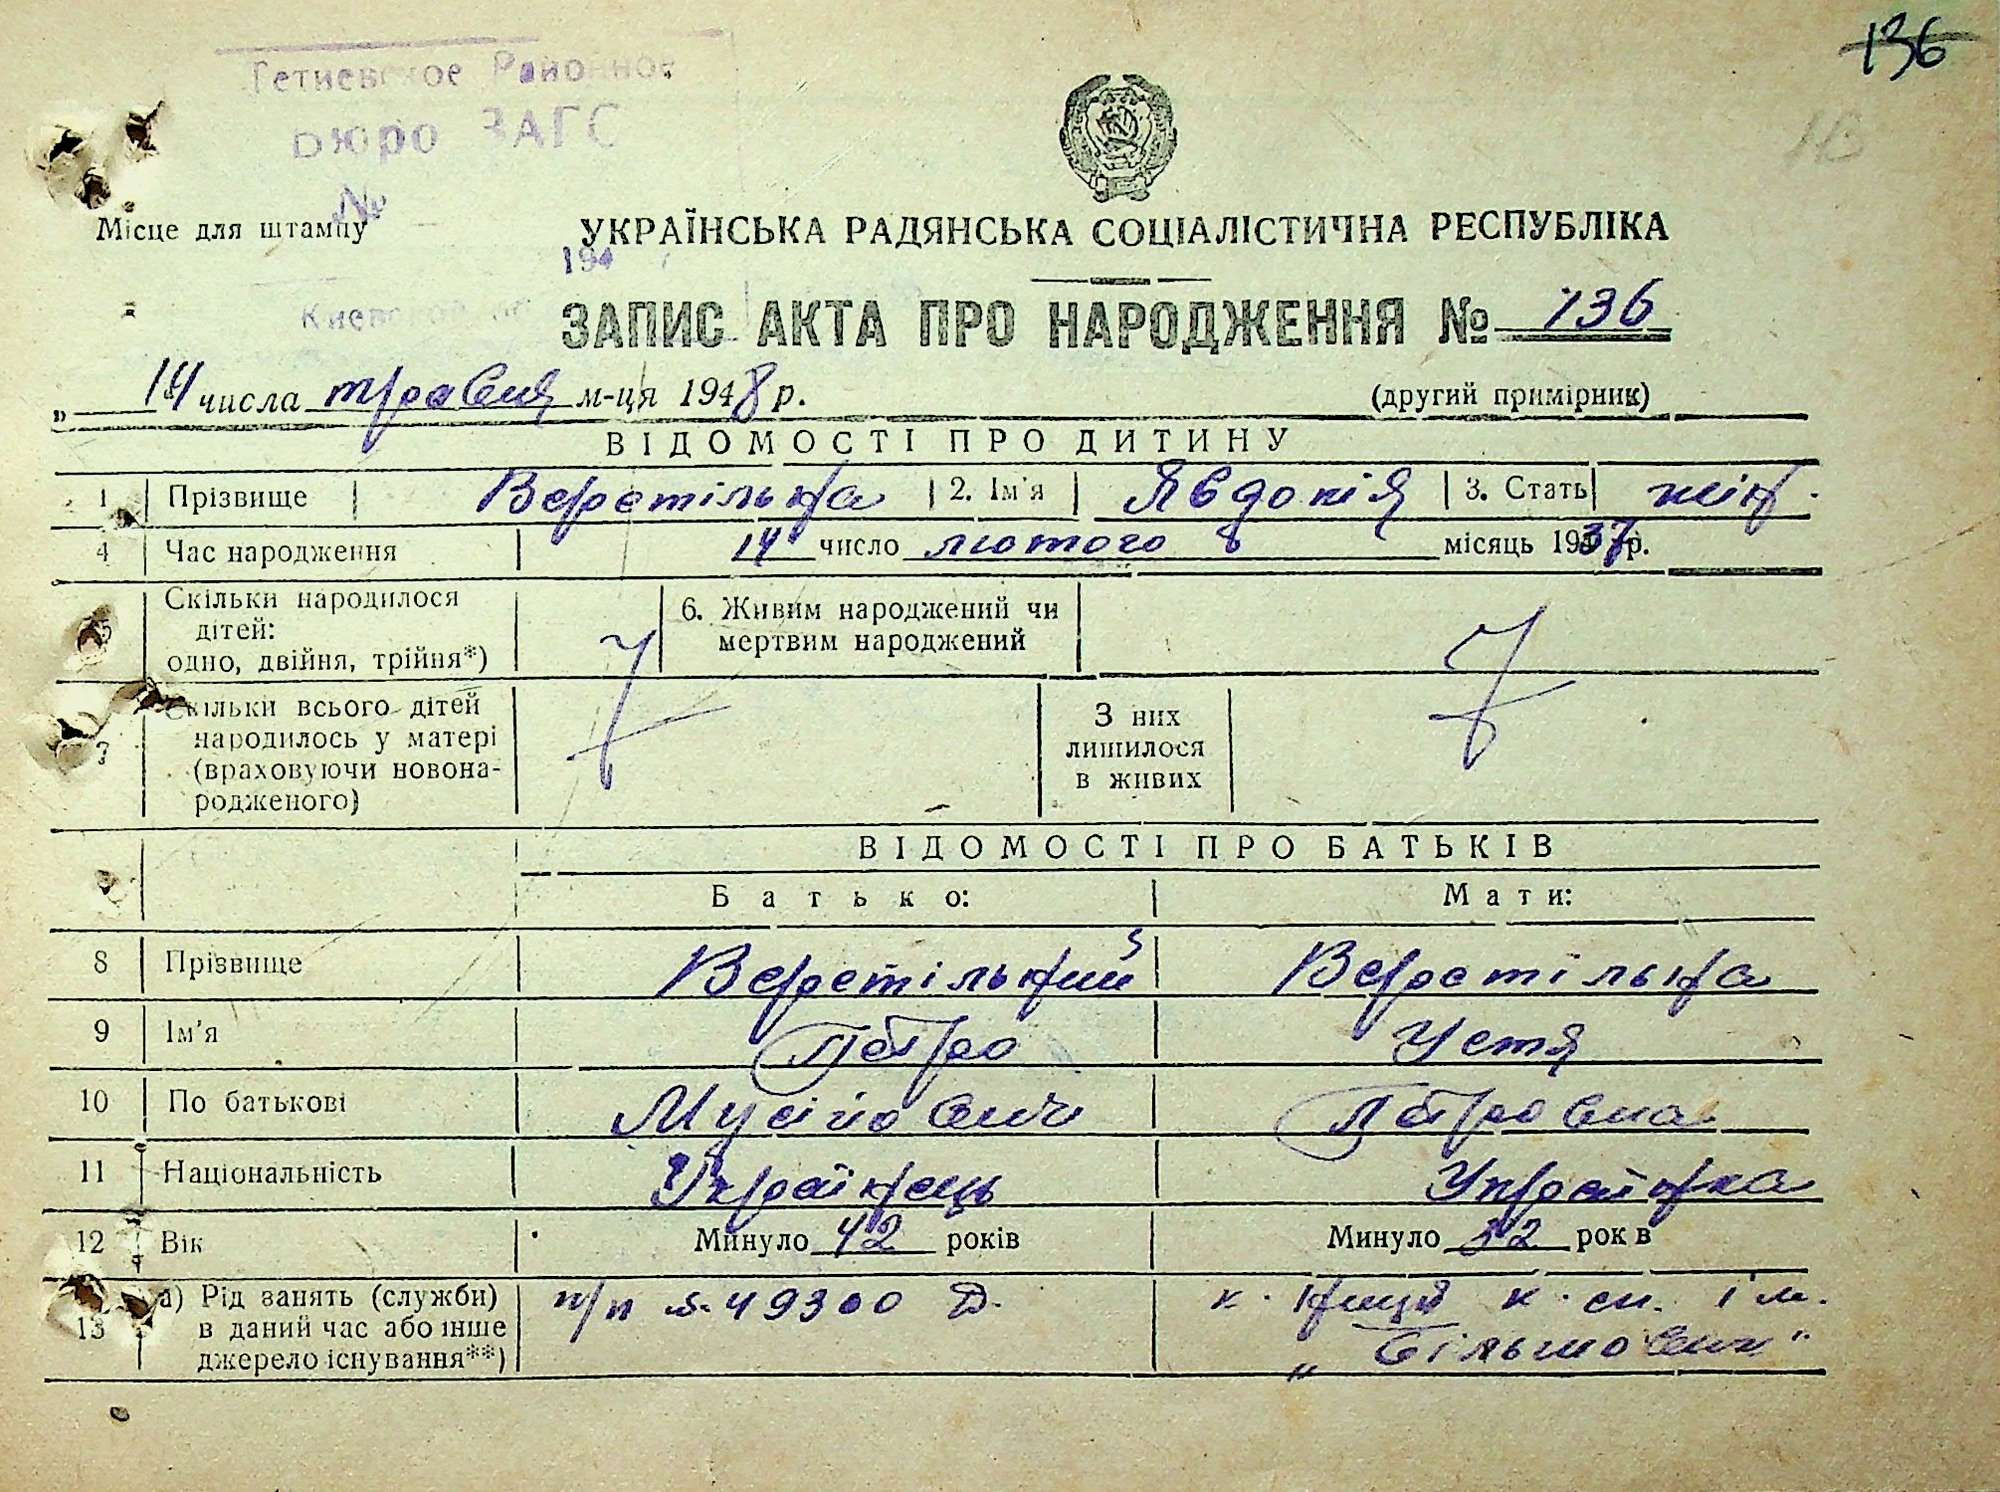 136
Тетиевское Районное
Бюро ЗАГС
№
Місце для штампу
УКРАЇНСЬКА РАДЯНСЬКА СОЦІАЛІСТИЧНА РЕСПУБЛІКА
194
Киевской
ЗАПИС АКТА ПРО НАРОДЖЕННЯ № 136
„ 14 числа травня м-ця 1948 р. (другий примірник)
ВІДОМОСТІ ПРО ДИТИНУ
1 Прізвище Веретільна 2. Ім'я Явдокія 3. Стать жін.
4 Час народження 14 число лютого місяць 1937 р.
5 Скільки народилося дітей: одно, двійня, трійня*) 6. Живим народжений чи мертвим народжений
7 Скільки всього дітей народилось у матері (враховуючи новонародженого) З них лишилося в живих
ВІДОМОСТІ ПРО БАТЬКІВ
Батько: Мати:
8 Прізвище Веретільний Веретільна
9 Ім'я Петро Устя
10 По батькові Мусійович Петровна
11 Національність Українець Українка
12 Вік Минуло 42 років Минуло 32 рок в
13 а) Рід занять (служби) в даний час або інше джерело існування**) п/п 49300 Д. к-ниця к-сп. ім. „Більшовик"